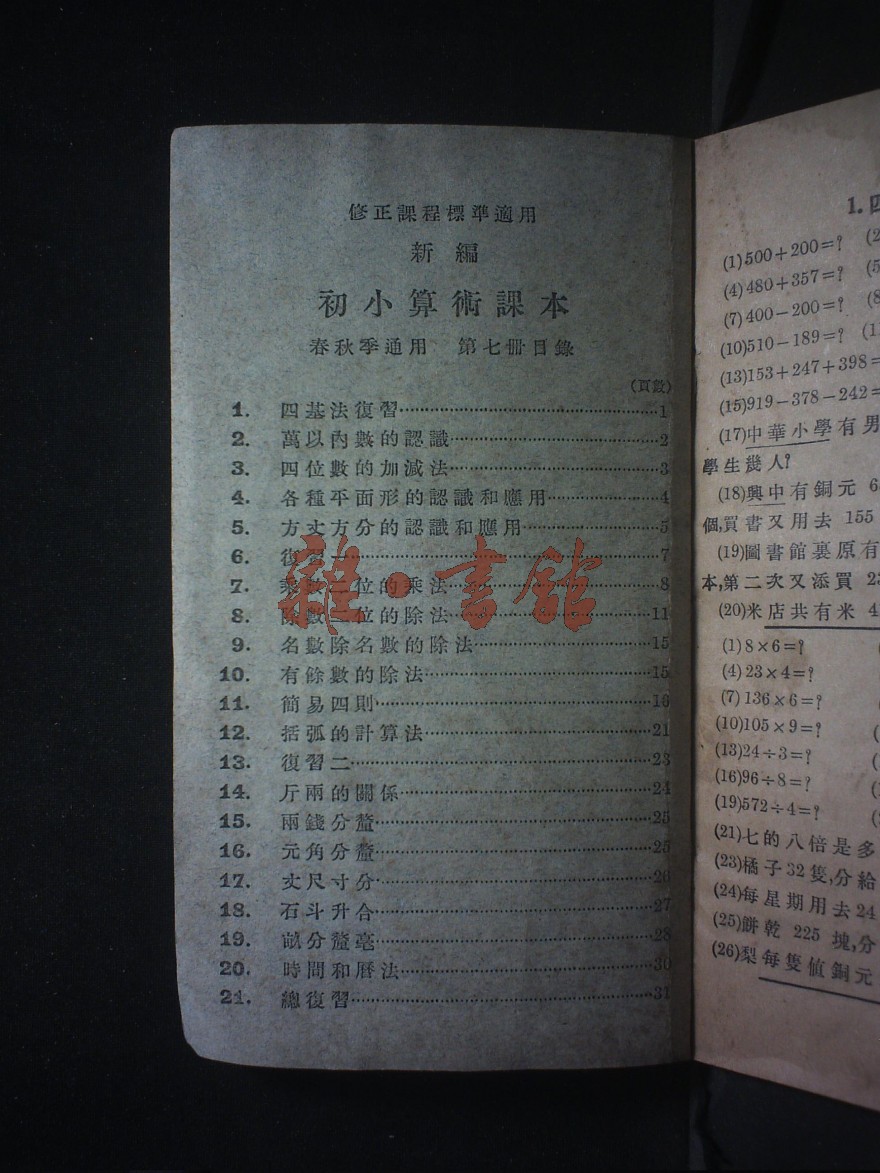 修正課程標準適用
新編
初小算術課本
春秋季通用 第七冊目錄
(頁數)
1. 四基法復習 1
2. 萬以內數的認識 2
3. 四位數的加減法 3
4. 各種平面形的認識和應用 4
5. 方丈方分的認識和應用 5
6. 復習一 7
7. 乘法二位的乘法 8
8. 除數二位的除法 11
9. 名數除名數的除法 15
10. 有餘數的除法 15
11. 簡易四則 16
12. 括弧的計算法 21
13. 復習二 23
14. 斤兩的關係 24
15. 兩錢分釐 25
16. 元角分釐 25
17. 丈尺寸分 26
18. 石斗升合 27
19. 畝分釐毫 28
20. 時間和曆法 30
21. 總復習 31
雜·書館
1.四
(1)500+200=? (2
(4)480+357=? (5
(7)400-200=? (8
(10)510-189=? (1
(13)153+247+398=
(15)919-378-242=
(17)中華小學有男
學生幾人?
(18)興中有銅元 6
個,買書又用去 155
(19)圖書館裏原有
本,第二次又添買 23
(20)米店共有米 4
(1)8×6=?
(4)23×4=?
(7)136×6=?
(10)105×9=?
(13)24÷3=?
(16)96÷8=?
(19)572÷4=?
(21)七的八倍是多
(23)橘子32隻,分給
(24)每星期用去24
(25)餅乾 225 塊,分
(26)梨每隻值銅元